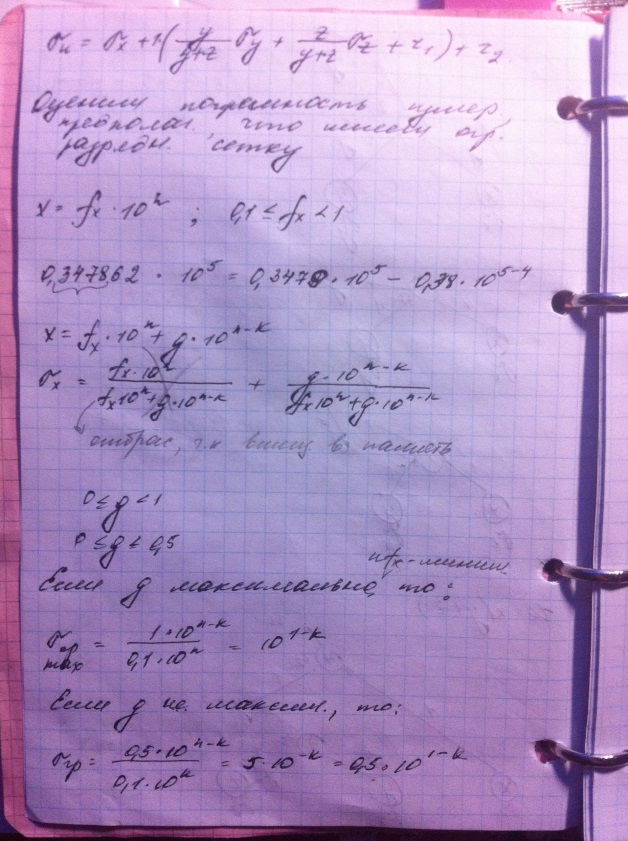 σ_u = σ_x + 1·(y/(y+z) σ_y + z/(y+z) σ_z + r_1) + r_2
Оценим погрешность
предполаг., что имеем огр.
разрядн. сетку
x = f_x · 10^n ; 0,1 ≤ f_x < 1
0,347862 · 10^5 = 0,3478 · 10^5 − 0,38 · 10^(5-4)
x = f_x · 10^n + g · 10^(n-k)
σ_x = (f_x · 10^n)/(f_x 10^n + g · 10^(n-k)) + (g · 10^(n-k))/(f_x 10^n + g · 10^(n-k))
отбрас, т.к в память
0 ≤ g < 1
0 ≤ g ≤ 0,5
f_x - миним
Если g максимально, то:
σ_ max = (1 · 10^(n-k))/(0,1 · 10^n) = 10^(1-k)
Если g не максим., то:
= (0,5 · 10^(n-k))/(0,1 · 10^n) = 5 · 10^(-k) = 0,5 · 10^(1-k)